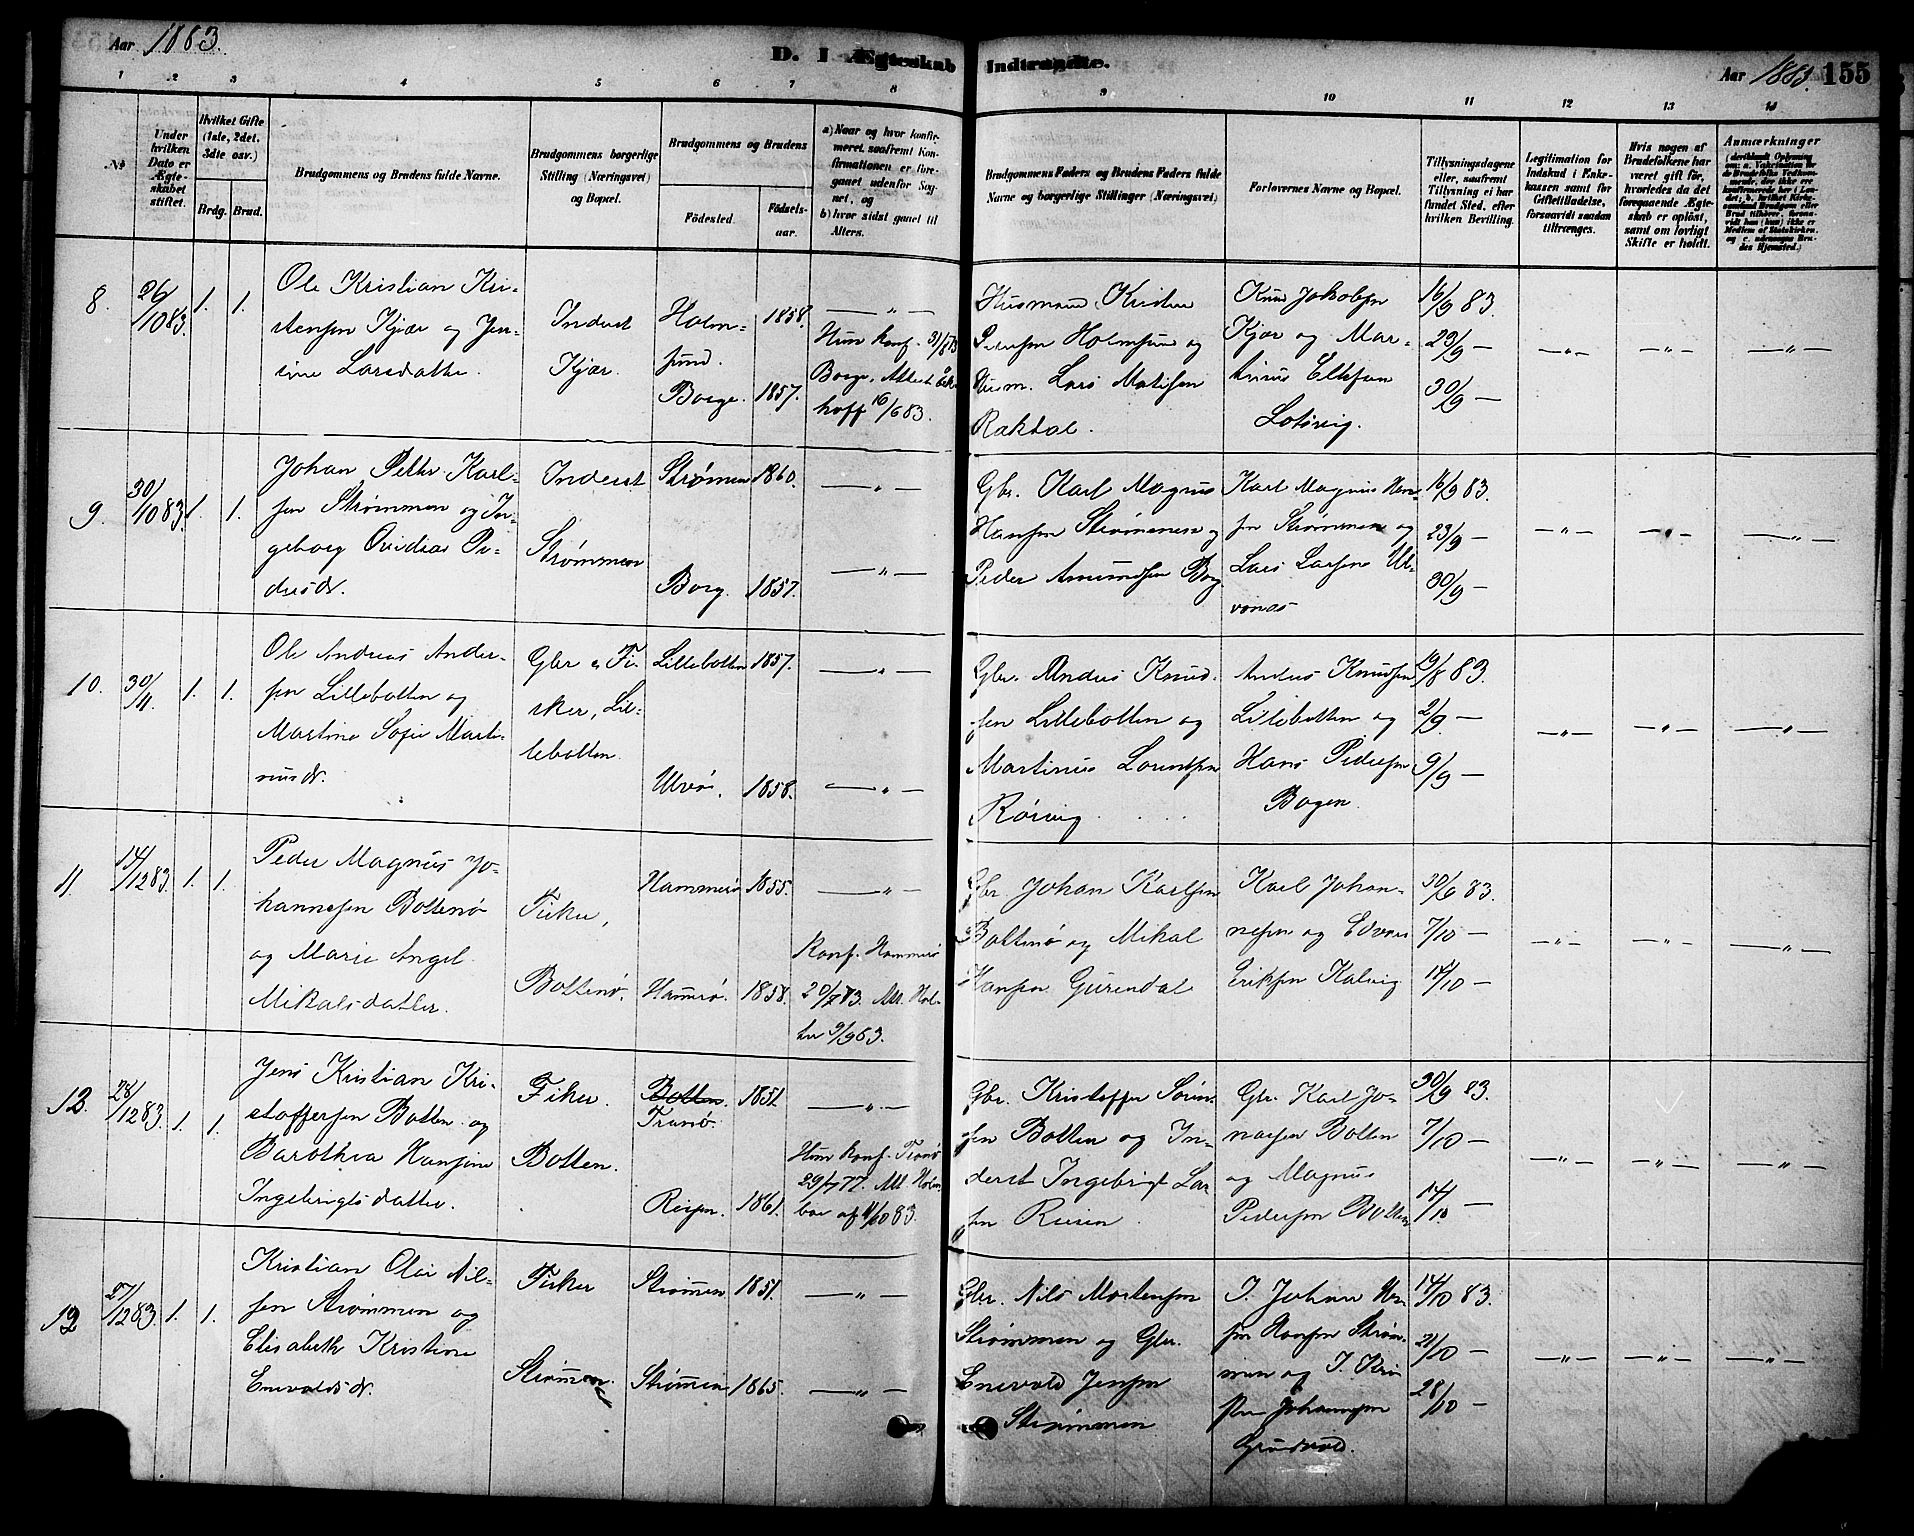 Aar 1883.
D. I Ægteskab Indtraadte.
Aar 1883. 155
1 2 3 4 5 6 7 8 9 10 11 12 13 14
No
Under hvilken Dato er Ægteskabet stiftet.
Hvilket Gifte (1ste, 2det, 3die osv.)
Brdg. Brud.
Brudgommens og Brudens fulde Navne.
Brudgommens borgerlige Stilling (Næringsvei) og Bopæl.
Brudgommens og Brudens
Fødested.
Fødselsaar.
a) Naar og hvor konfirmeret, saafremt Konfirmationen er foregaaet udenfor Sognet, og
b) hvor sidst gaaet til Alters.
Brudgommens Faders og Brudens Faders fulde Navne og borgerlige Stillinger (Næringsvei)
Forlovernes Navne og Bopæl.
Tillysningsdagene eller, saafremt Tillysning ei har fundet Sted, efter hvilken Bevilling.
Legitimation for Indskud i Enkekassen samt for Giftetilladelse, forsaavidt saadan tiltrænges.
Hvis nogen af Brudefolkene har været gift før, hvorledes da det foregaaende Ægteskab er opløst, samt om lovligt Skifte er holdt.
Anmærkninger
8. 26/10 83. 1. 1.
Ole Kristian Kri-
stensen Kjær og Jen-
sine Larsdatter.
Inderst
Kjær.
Holm-
sund. 1858. — " —
Borge. 1857.
Hun konf. 31/8 73
Borge, Attest
hoff 16/6 83.
Husmand Kristen
Pedersen Holmsund og
Husm. Lars Matisen
Raktal.
Knud Jakobsen
Kjær og Mar-
tinus Ellefsen
16/9 83.
23/9 —
30/9 —
— " — — " — — " —
9. 30/10 83. 1. 1.
Johan Petter Karl-
sen Strømmen og In-
geborg Ovidia Pe-
dersdr.
Inderst
Strømmen
Strømmen 1860. — " —
Borg. 1857. — " —
Gbr. Karl Magnus
Hansen Strømmen og
Peder Amundsen Borg
Karl Magnus Han-
sen Strømmen og
Lars Larsen Ul-
vønæs
16/9 83.
23/9 —
30/9 —
— " — — " — — " —
10. 30/11. 1. 1.
Ole Andreas Ander-
sen Lillebotten og
Martine Sofie Marti-
nusdr.
Gbr & Fi-
sker, Lil-
lebotten.
Lillebotten 1857. — " —
Ulvøi, 1858. — " —
Gbr. Anders Knud-
sen Lillebotten og
Martinus Lorentsen
Rørvig
Anders Knudsen
Lillebotten og
Hans Pedersen
Bogen.
19/8 83.
2/9 —
9/9 —
— " — — " — — " —
11 14/12 83. 1. 1.
Peder Magnus Jo-
hannesen Bottenø
og Marie Angel
Mikalsdatter.
Fisker,
Bottenø.
Hammerø 1855. — " —
Hamerø. 1858.
Konf. Hammerø
20/7 83. Att. Hol-
ter 9/9 83.
Gbr. Johan Karlsen
Bottenø og Mikal
Hansen Gurendal
Karl Johan-
nesen og Edvard
Eriksen Kalvig
30/6 83.
7/10 —
14/10 —
— " — — " — — " —
12. 28/12 83. 1. 1.
Jens Kristian Kri-
stoffersen Botten og
Barothea Hansine
Ingebrigtsdatter.
Fisker.
Botten.
Botten.
Tranø. 1851. — " —
Reisen. 1861.
Hun konf. Tranø
29/7 77. Att. Holm-
boe af 4/10 83.
Gbr. Kristoffer Søren-
sen Botten og In-
derst Ingebrigt Lar-
sen Reisen.
Gbr. Karl Jo-
nasen Botten
og Magnus
Pedersen Botten
30/9 83.
7/10 —
14/10 —
— " — — " — — " —
13 27/12 83. 1. 1.
Kristian Olai Nil-
sen Strømmen og
Elisabeth Kristine
Enevoldsdr.
Fisker
Strømmen.
Strømmen. 1851. — " —
Strømmen 1865. — " —
Gbr. Nils Mortensen
Strømmen og Gbr.
Enevold Jensen
Strømmen
I. Johan Han-
sen Hansen Strøm-
men og I. Kri
sten Johannesen
14/10 83.
21/10 —
28/10 —
— " — — " — — " —